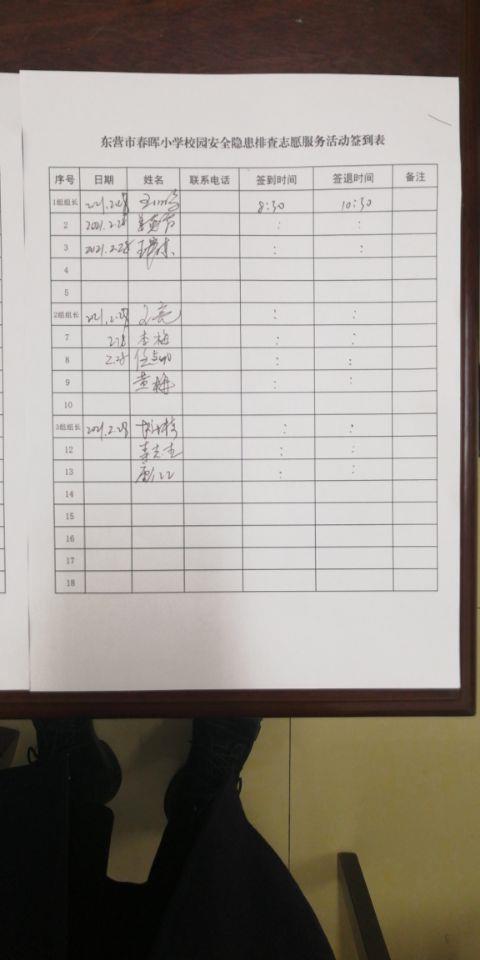 东营市春晖小学校园安全隐患排查志愿服务活动签到表
序号 日期 姓名 联系电话 签到时间 签退时间 备注
1组组长 2021.2.28 8:30 10:30
2 2021.2.28 : :
3 2021.2.28 : :
4
5
2组组长 2021.2.28 王亮 : :
7 2.28 李梅 : :
8 2.28 : :
9 黄梅 : :
10
3组组长 2021.2.28 : :
12 : :
13 : :
14
15
16
17
18